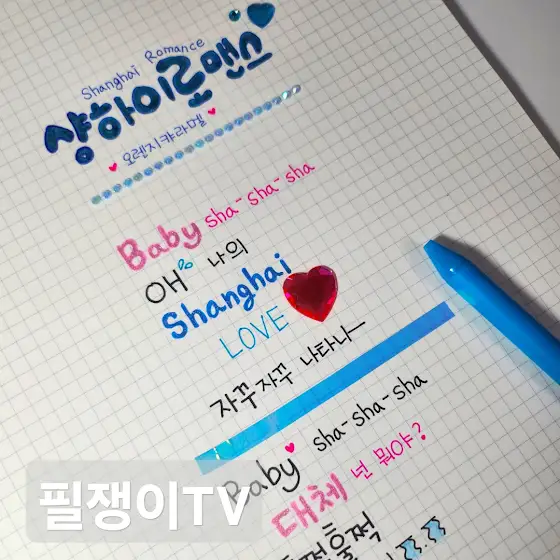 Shanghai Romance
샹하이로맨스
오렌지캬라멜
Baby sha-sha-sha
OH 나의
Shanghai
LOVE
자꾸자꾸 나타나
Baby sha-sha-sha
대체 넌 뭐야?
훌쩍
필쟁이TV